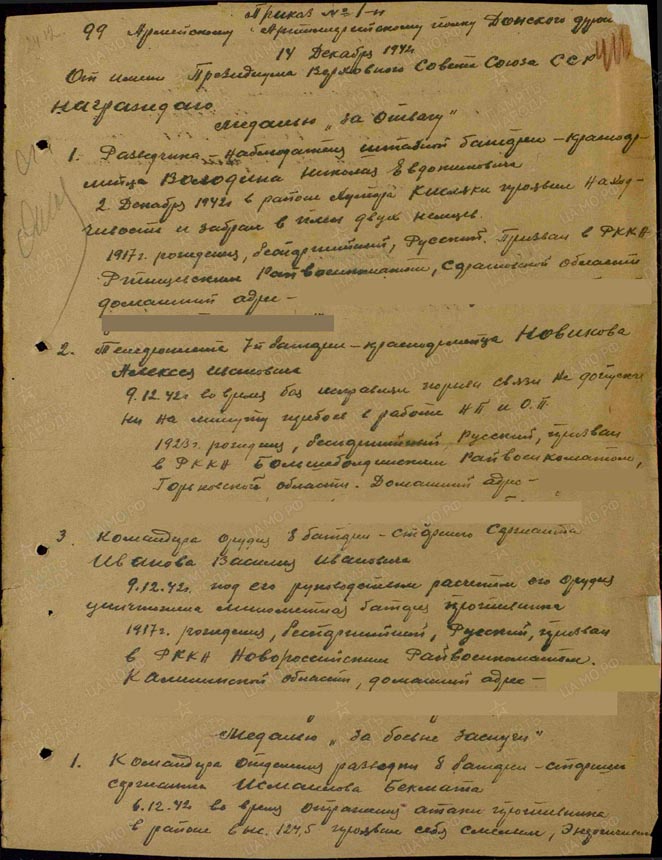 Приказ № 1-н
99 Армейскому Артиллерийскому полку Донского фронта
14 Декабря 1942г.
От имени Президиума Верховного Совета Союза ССР
Награждаю
Медалью „За Отвагу"
1. Разведчика-Наблюдателя штабной батареи - красноар-
мейца Володина Николая Евдокимовича
2 Декабря 1942г в районе Хутора Кисляки проявил Наход-
чивость и забрал в плен двух немцев.
1917г. рождения, беспартийный, Русский. Призван в РККА
Ртищевским Райвоенкоматом, Саратовской области
домашний адрес -
2. Телефониста 7й батареи - красноармейца Новикова
Алексея
9.12.42г во время боя исправлял порывы связи Не допуская
Ни на минуту перебоев в работе НП и О.П.
1923г. рождения, беспартийный Русский, призван
в РККА Большеболдинским Райвоенкоматом,
Горьковской области. Домашний адрес -
3. Командира орудия 8 батареи - старшего Сержанта
Иванова Василия Ивановича
9.12.42г. под его руководством расчетом его орудия
уничтожена минометная батарея противника
1917г. рождения, беспартийный, Русский, призван
в РККА Новороссийским Райвоенкоматом.
Калининской области, домашний адрес -
Медалью „За боевые заслуги"
1. Командира отделения разведки 8 батареи - старшего
сержанта Исмаилова Бекмата
6.12.42 во время отражения атаки противника
в районе выс. 124,5 проявил себя смелым,